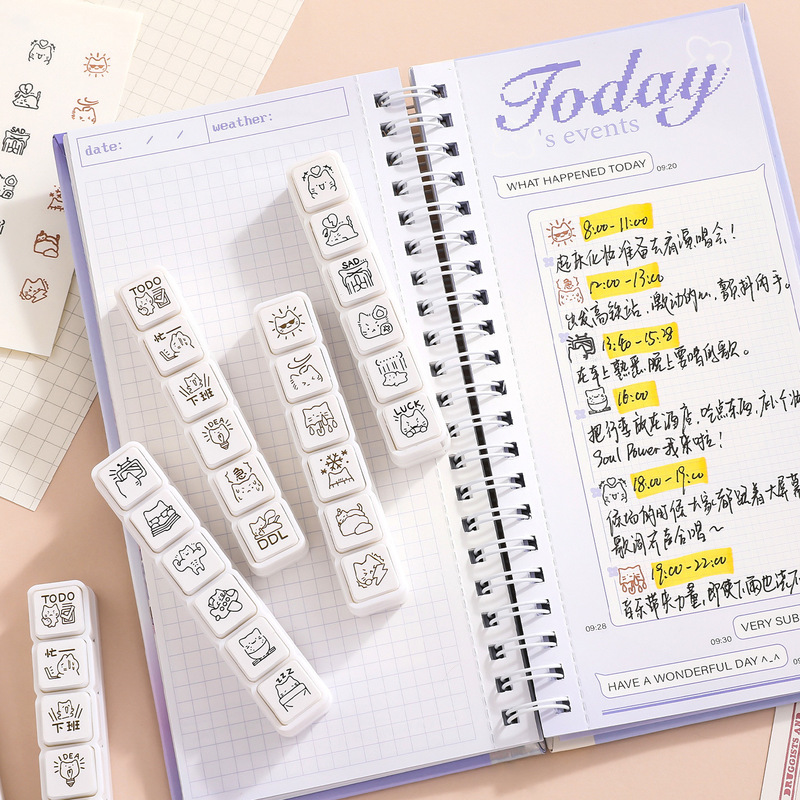 date: / /
weather:
Today
's events
WHAT HAPPENED TODAY
09:20
8:00-11:00
起床化妆准备去看演唱会！
12:00-13:00
出发高铁站，激动的心，颤抖的手。
13:40-15:28
在车上熟悉晚上要唱的歌。
16:00
把行李放在酒店，吃点东西，
Soul Power 我来啦！
18:00-19:00
候场的时候大家都跟着大屏幕
歌词齐声合唱~
19:00-22:00
音乐带来力量，即使下雨也
09:28
VERY SUB
09:30
HAVE A WONDERFUL DAY ^_^
SAD
LUCK
TODO
忙
下班
IDEA
急
DDL
ZZZ
TODO
忙
下班
IDEA
SAD
DRUGGISTS AND